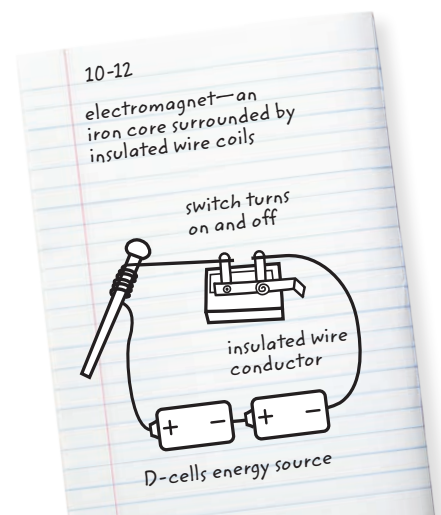 10-12
electromagnet—an
iron core surrounded by
insulated wire coils
switch turns
on and off
insulated wire
conductor
+ − + −
D-cells energy source